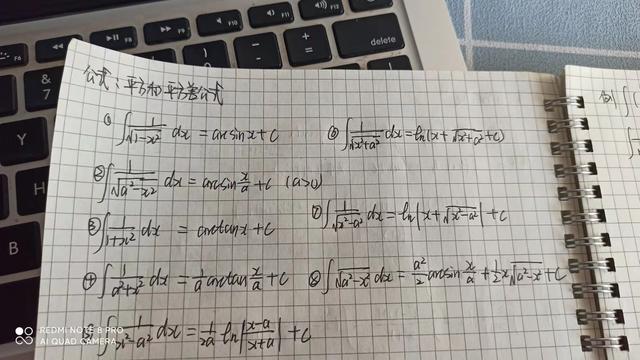 F4
F6
F7
F8
F9
F10
F11
F12
& 7
- + =
delete
B
N
公式:平方和平方差公式
① ∫ 1/√(1-x²) dx = arcsinx+C
⑥ ∫ 1/√(x²+a²) dx = ln(x+√(x²+a²)+C)
② ∫ 1/√(a²-x²) dx = arcsin x/a + C (a>0)
⑦ ∫ 1/√(x²-a²) dx = ln|x+√(x²-a²)|+C
③ ∫ 1/(1+x²) dx = arctanx+C
④ ∫ 1/(a²+x²) dx = 1/a arctan x/a + C
⑧ ∫ √(a²-x²) dx = a²/2 arcsin x/a + 1/2 x√(a²-x²)+C
⑤ ∫ 1/(x²-a²) dx = 1/2a ln|(x-a)/(x+a)| + C
REDMI NOTE 8 PRO
AI QUAD CAMERA